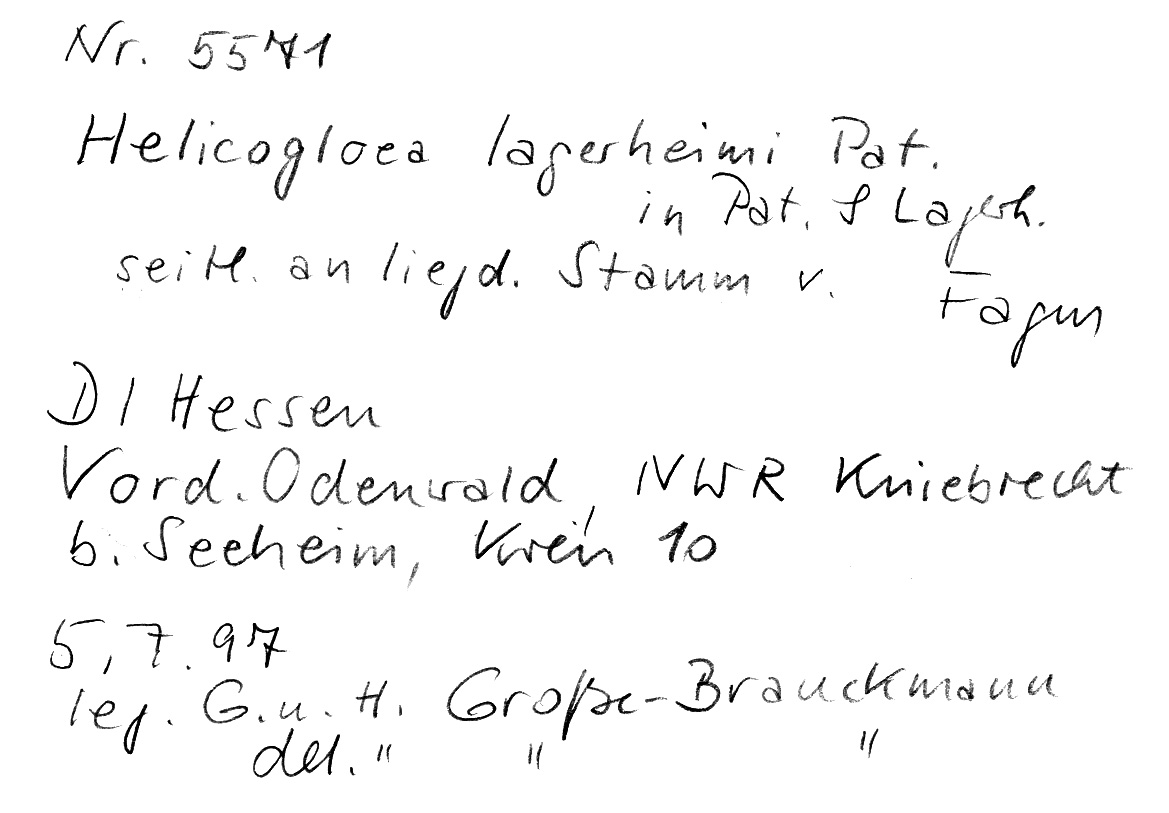 Nr. 5571
Helicogloea lagerheimi Pat.
in Pat. & Lagerh.
seitl. an liegd. Stamm v. Fagus
D / Hessen
Vord. Odenwald, NWR Kniebrecht
b. Seeheim, Kreis 10
5.7.97
leg. G. u. H. Große-Brauckmann
det. " " "